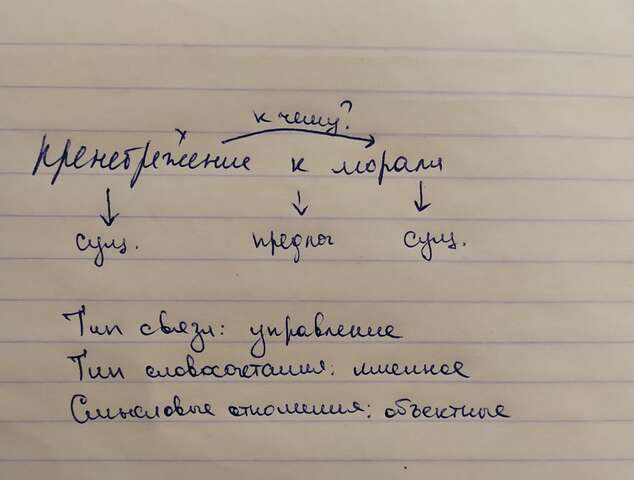 к чему?
х
пренебрежение к морали
сущ. предлог сущ.
Тип связи: управление
Тип словосочетания: именное
Смысловые отношения: объектные